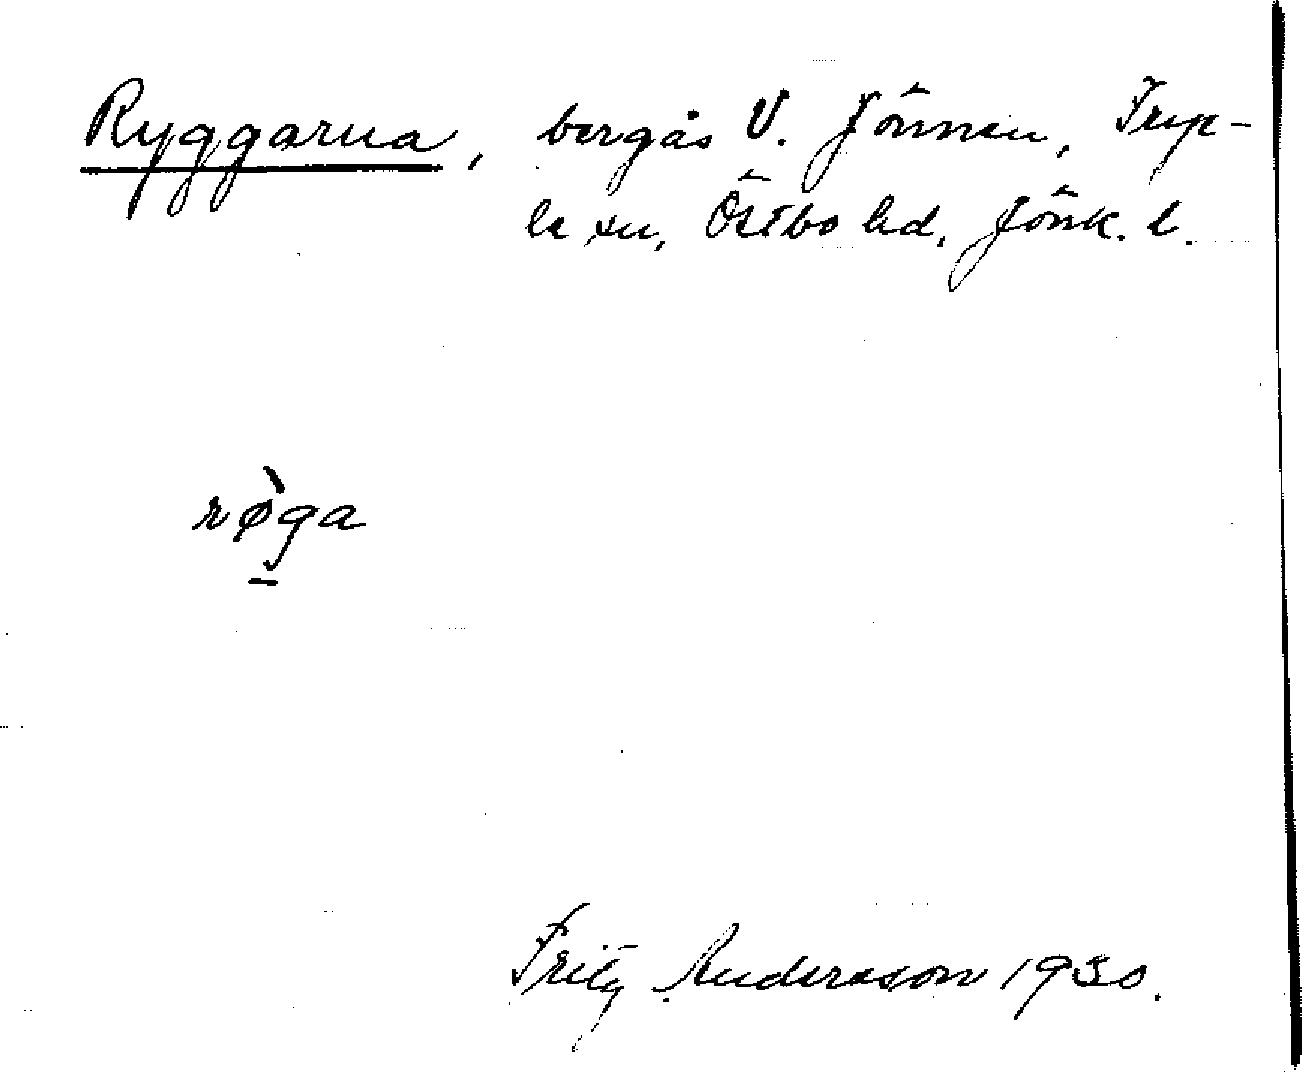 Ryggarna, bergås V. Jönnen, Frye-
le sn, Östbo hd, Jönk. l.
rø̀ga
Fritz Andersson 1930.